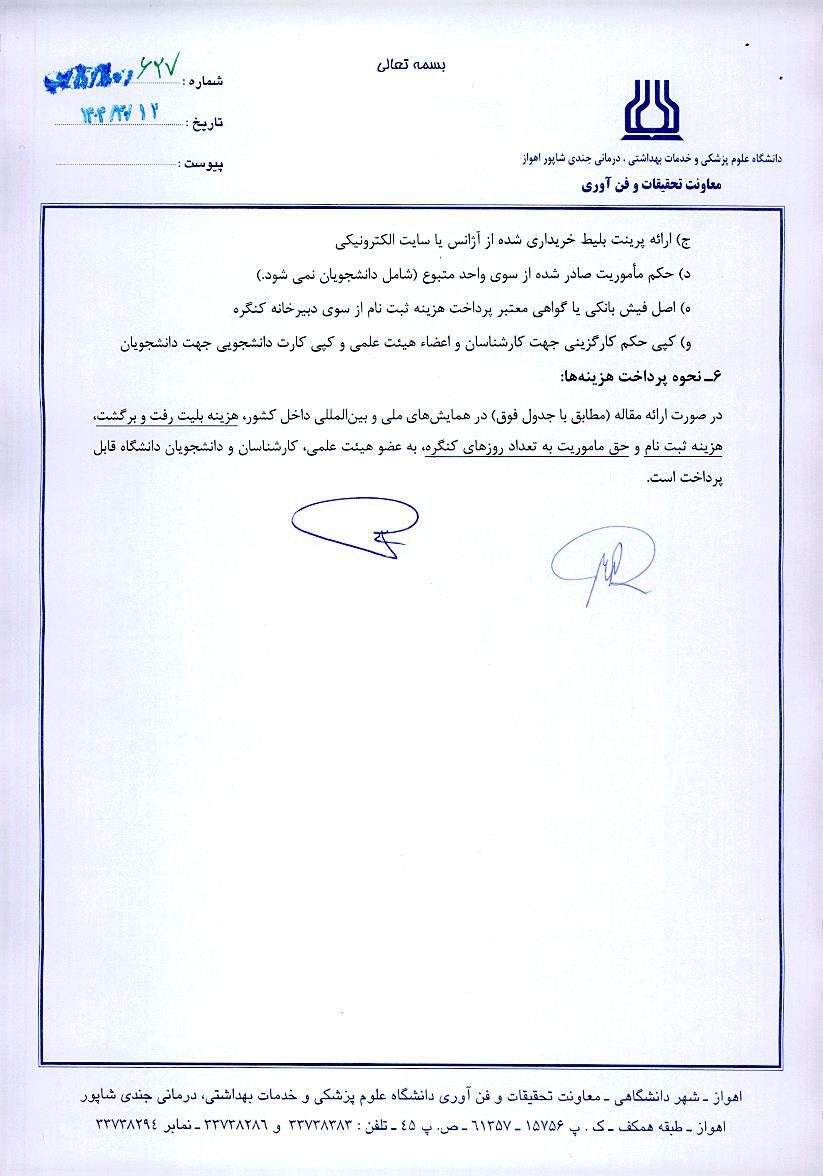 بسمه تعالی
شماره : ۶۲۷
تاریخ :
پیوست :
دانشگاه علوم پزشکی و خدمات بهداشتی ، درمانی جندی شاپور اهواز
معاونت تحقیقات و فن آوری
ج) ارائه پرینت بلیط خریداری شده از آژانس یا سایت الکترونیکی
د) حکم مأموریت صادر شده از سوی واحد متبوع (شامل دانشجویان نمی شود.)
ه) اصل فیش بانکی یا گواهی معتبر پرداخت هزینه ثبت نام از سوی دبیرخانه کنگره
و) کپی حکم کارگزینی جهت کارشناسان و اعضاء هیئت علمی و کپی کارت دانشجویی جهت دانشجویان
۶ـ نحوه پرداخت هزینه‌ها:
در صورت ارائه مقاله (مطابق با جدول فوق) در همایش‌های ملی و بین‌المللی داخل کشور، هزینه بلیت رفت و برگشت،
هزینه ثبت نام و حق ماموریت به تعداد روزهای کنگره، به عضو هیئت علمی، کارشناسان و دانشجویان دانشگاه قابل
پرداخت است.
اهواز ـ شهر دانشگاهی ـ معاونت تحقیقات و فن آوری دانشگاه علوم پزشکی و خدمات بهداشتی، درمانی جندی شاپور
اهواز ـ طبقه همکف ـ ک . پ ۱۵۷۵۶ ـ ۶۱۳۵۷ ـ ص. پ ۴۵ ـ تلفن : ۳۳۷۳۸۳۸۳ و ۳۳۷۳۸۲۸۶ ـ نمابر ۳۳۷۳۸۲۹۴